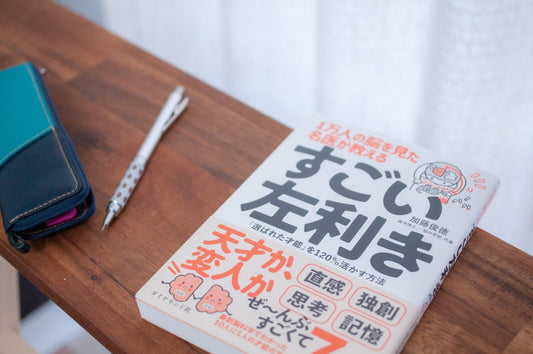 1万人の脳を見た
名医が教える
すごい
左利き
加藤俊徳
「選ばれた才能」を120%活かす方法
天才か、
変人か
直感
独創
思考
記憶
ぜ〜んぶ、
すごくて
ダイヤモンド社
最新脳科学でわかった